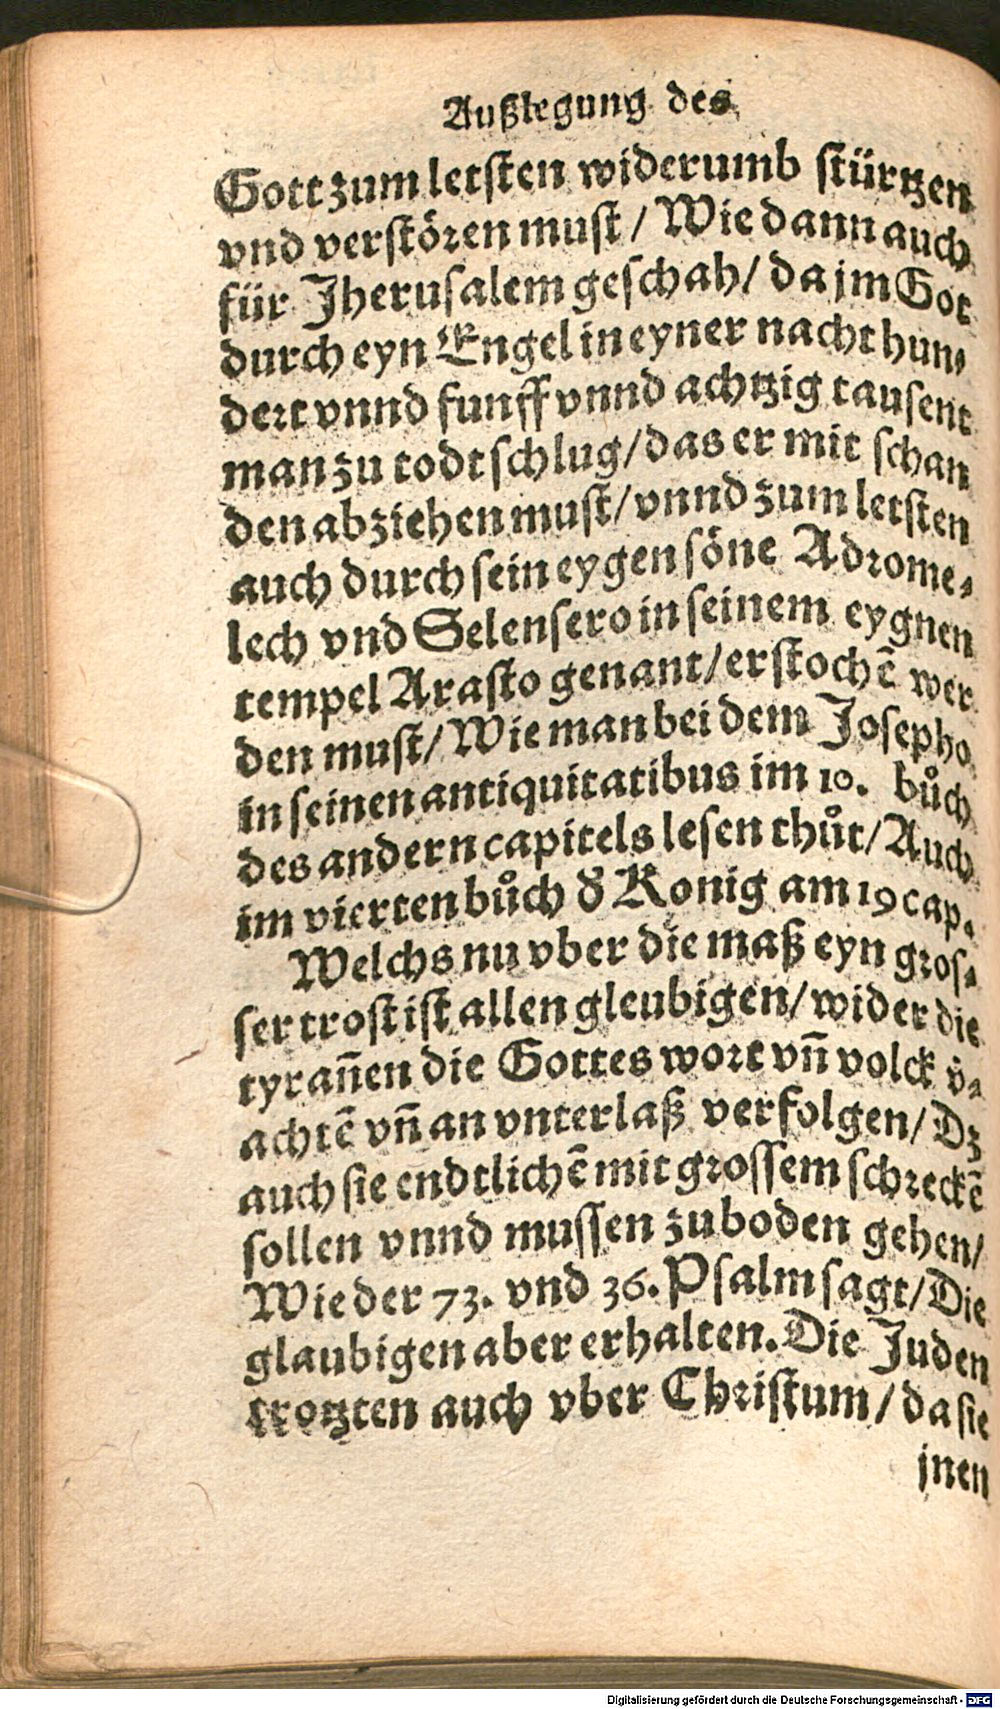 Außlegung des
Gott zum letsten widerumb stürtzen
vnd verstören must / Wie dann auch
für Jherusalem geschah / da jm Got
durch eyn Engel in eyner nacht hun⸗
dert vnnd funff vnnd achtzig tausent
man zu todt schlug / das er mit schan
den abziehen must / vnnd zum letsten
auch durch sein eygen söne Adrome⸗
lech vnd Selensero in seinem eygnen
tempel Arasto genant / erstochē wer
den must / Wie man bei dem Josepho
in seinen antiquitatibus im 10. bůch
des andern capitels lesen thůt / Auch
im vierten bůch d̕ Konig am 19 cap.
Welchs nu vber die maß eyn gros⸗
ser trost ist allen gleubigen / wider die
tyrañen die Gottes wort vñ volck v̕⸗
achtē vñ an vnterlaß verfolgen / Dz
auch sie endtlichē mit grossem schreckē
sollen vnnd mussen zu boden gehen /
Wie der 73. vnd 36. Psalm sagt / Die
glaubigen aber erhalten. Die Juden
trotzten auch vber Christum / da sie
jnen
Digitalisierung gefördert durch die Deutsche Forschungsgemeinschaft - DFG